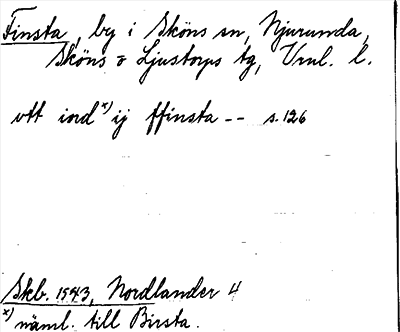 Finsta, by i Sköns sn, Njurunda,
Sköns o Ljustorps tg, Vml. l.
vtt iord x) ij ffinsta -- s. 126
Skb. 1543, Nordlander 4
x) näml. till Birsta.